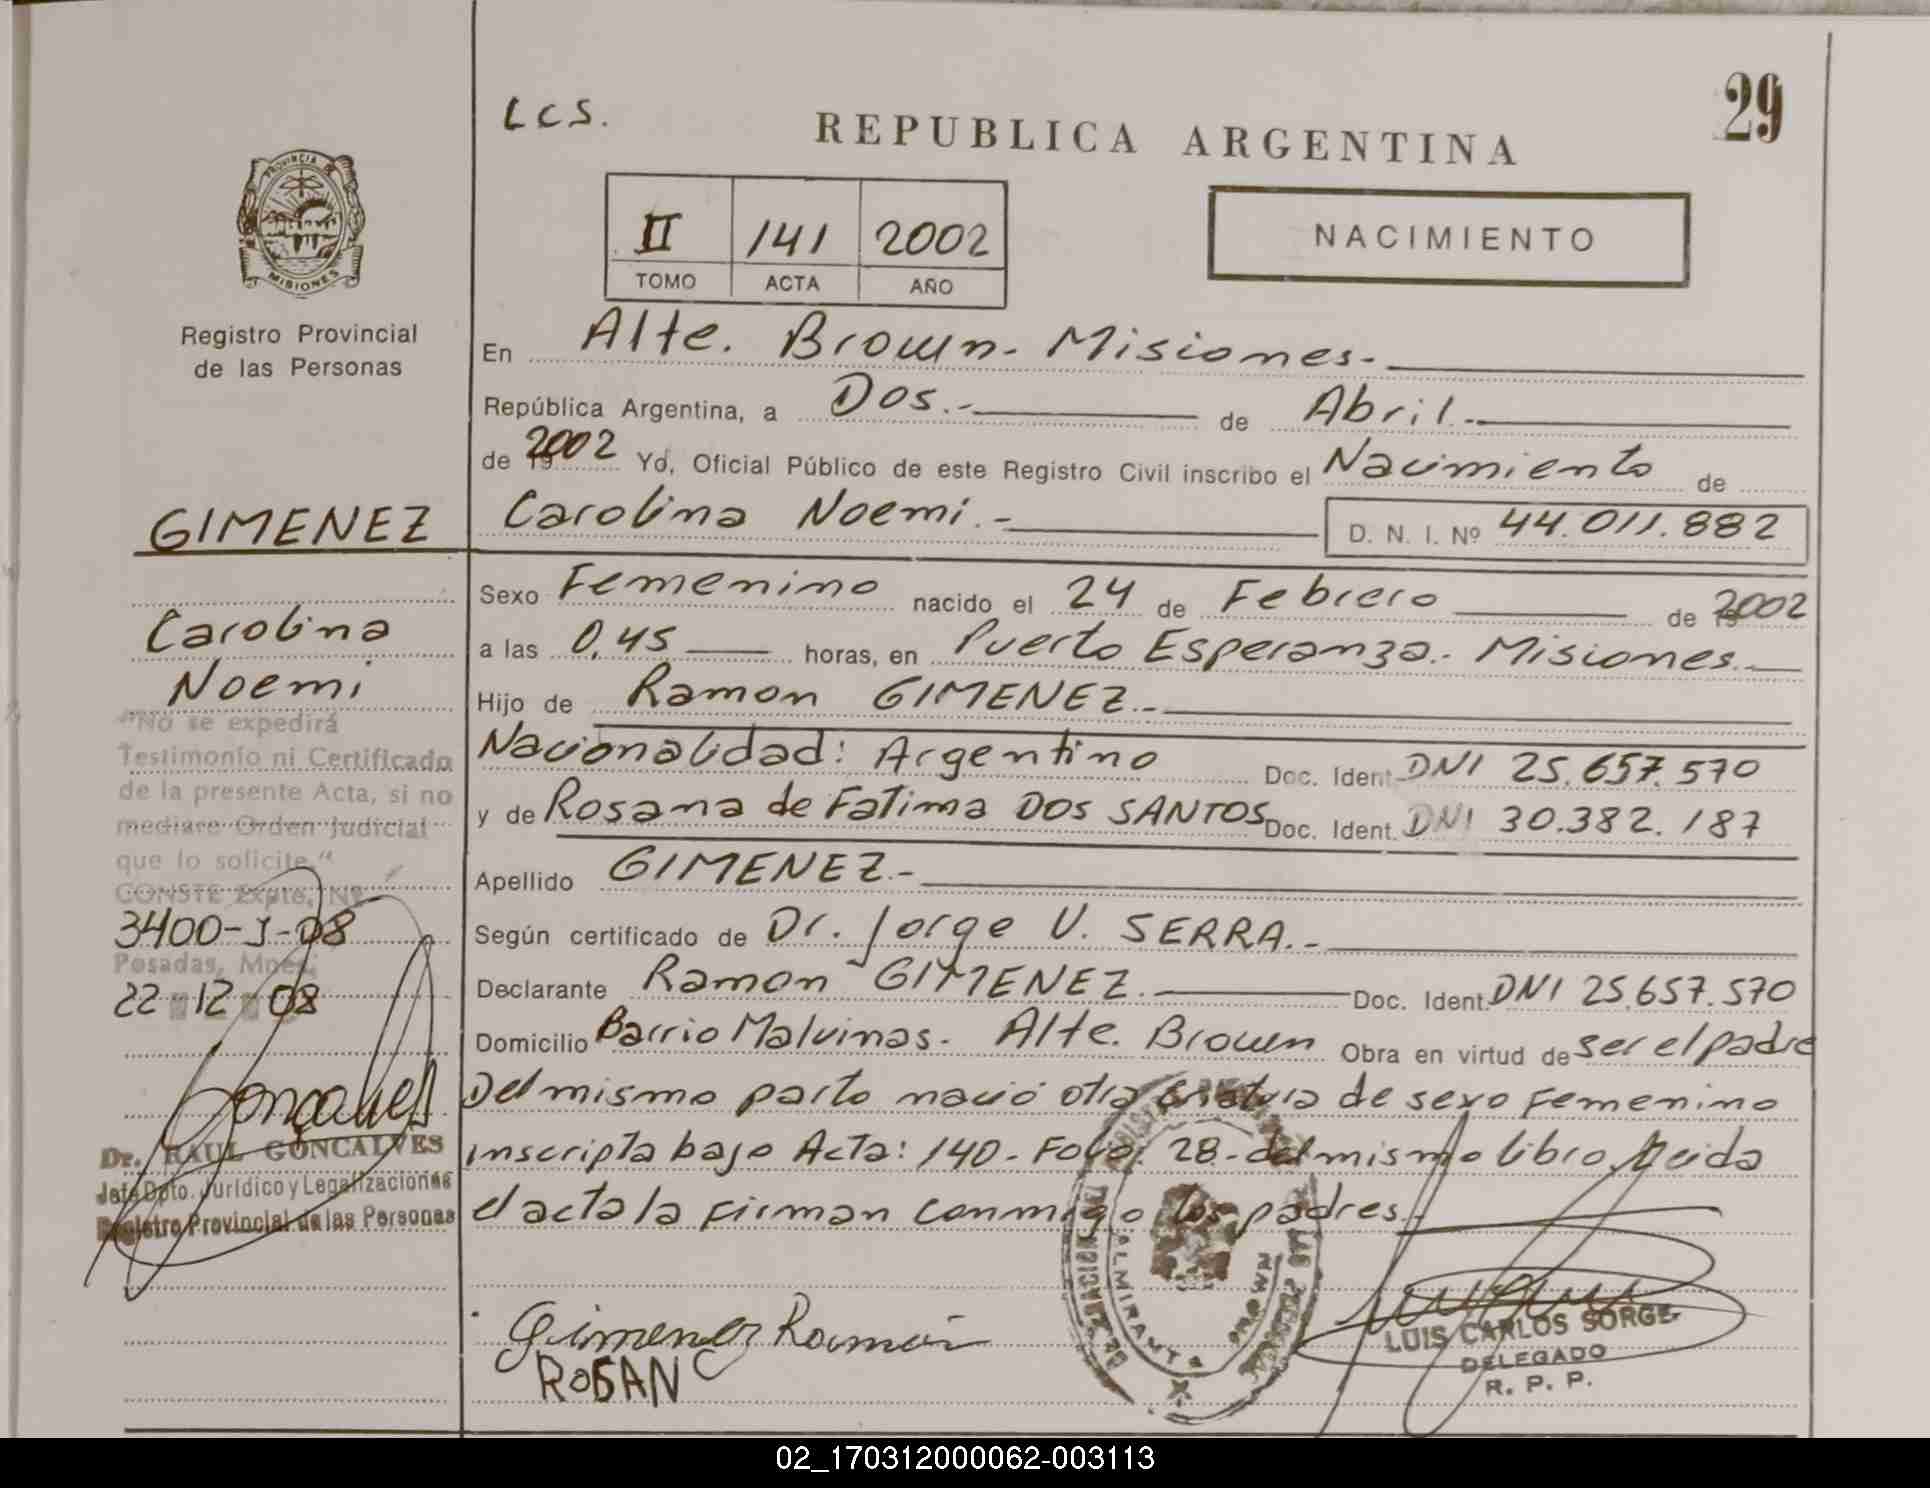 LCS.
REPUBLICA ARGENTINA
29
PROVINCIA DE
MISIONES
II 141 2002
TOMO ACTA AÑO
NACIMIENTO
Registro Provincial
de las Personas
En Alte. Brown - Misiones.-
República Argentina, a Dos.- de Abril.-
de 2002 Yo, Oficial Público de este Registro Civil inscribo el Nacimiento de
GIMENEZ
Carolina Noemi.- D. N. I. Nº 44.011.882
Carolina
Noemi
Sexo Femenino nacido el 24 de Febrero de 2002
a las 0,45 horas, en Puerto Esperanza.- Misiones.-
Hijo de Ramon GIMENEZ.-
Nacionalidad: Argentino Doc. Ident. DNI 25.657.570
y de Rosana de Fatima DOS SANTOS Doc. Ident. DNI 30.382.187
Apellido GIMENEZ.-
Según certificado de Dr. Jorge V. SERRA.-
Declarante Ramon GIMENEZ.- Doc. Ident. DNI 25.657.570
Domicilio Barrio Malvinas. Alte. Brown Obra en virtud de ser el padre
Del mismo parto nació otra criatura de sexo femenino
inscripta bajo Acta: 140 - Folio: 28 - del mismo libro. Leida
el acta la firman conmigo los padres.-
"No se expedirá
Testimonio ni Certificado
de la presente Acta, si no
mediare Orden Judicial
que lo solicite."
CONSTE Expte. Nº
3400-J-08
Posadas, Mnes,
22-12-08
Goncalves
Dr. RAUL GONCALVES
Jefe Dpto. Jurídico y Legalizaciones
Registro Provincial de las Personas
Gimenez Ramón
ROSAN
ALMIRANTE
BROWN
LUIS CARLOS SORGE
DELEGADO
R. P. P.
02_170312000062-003113